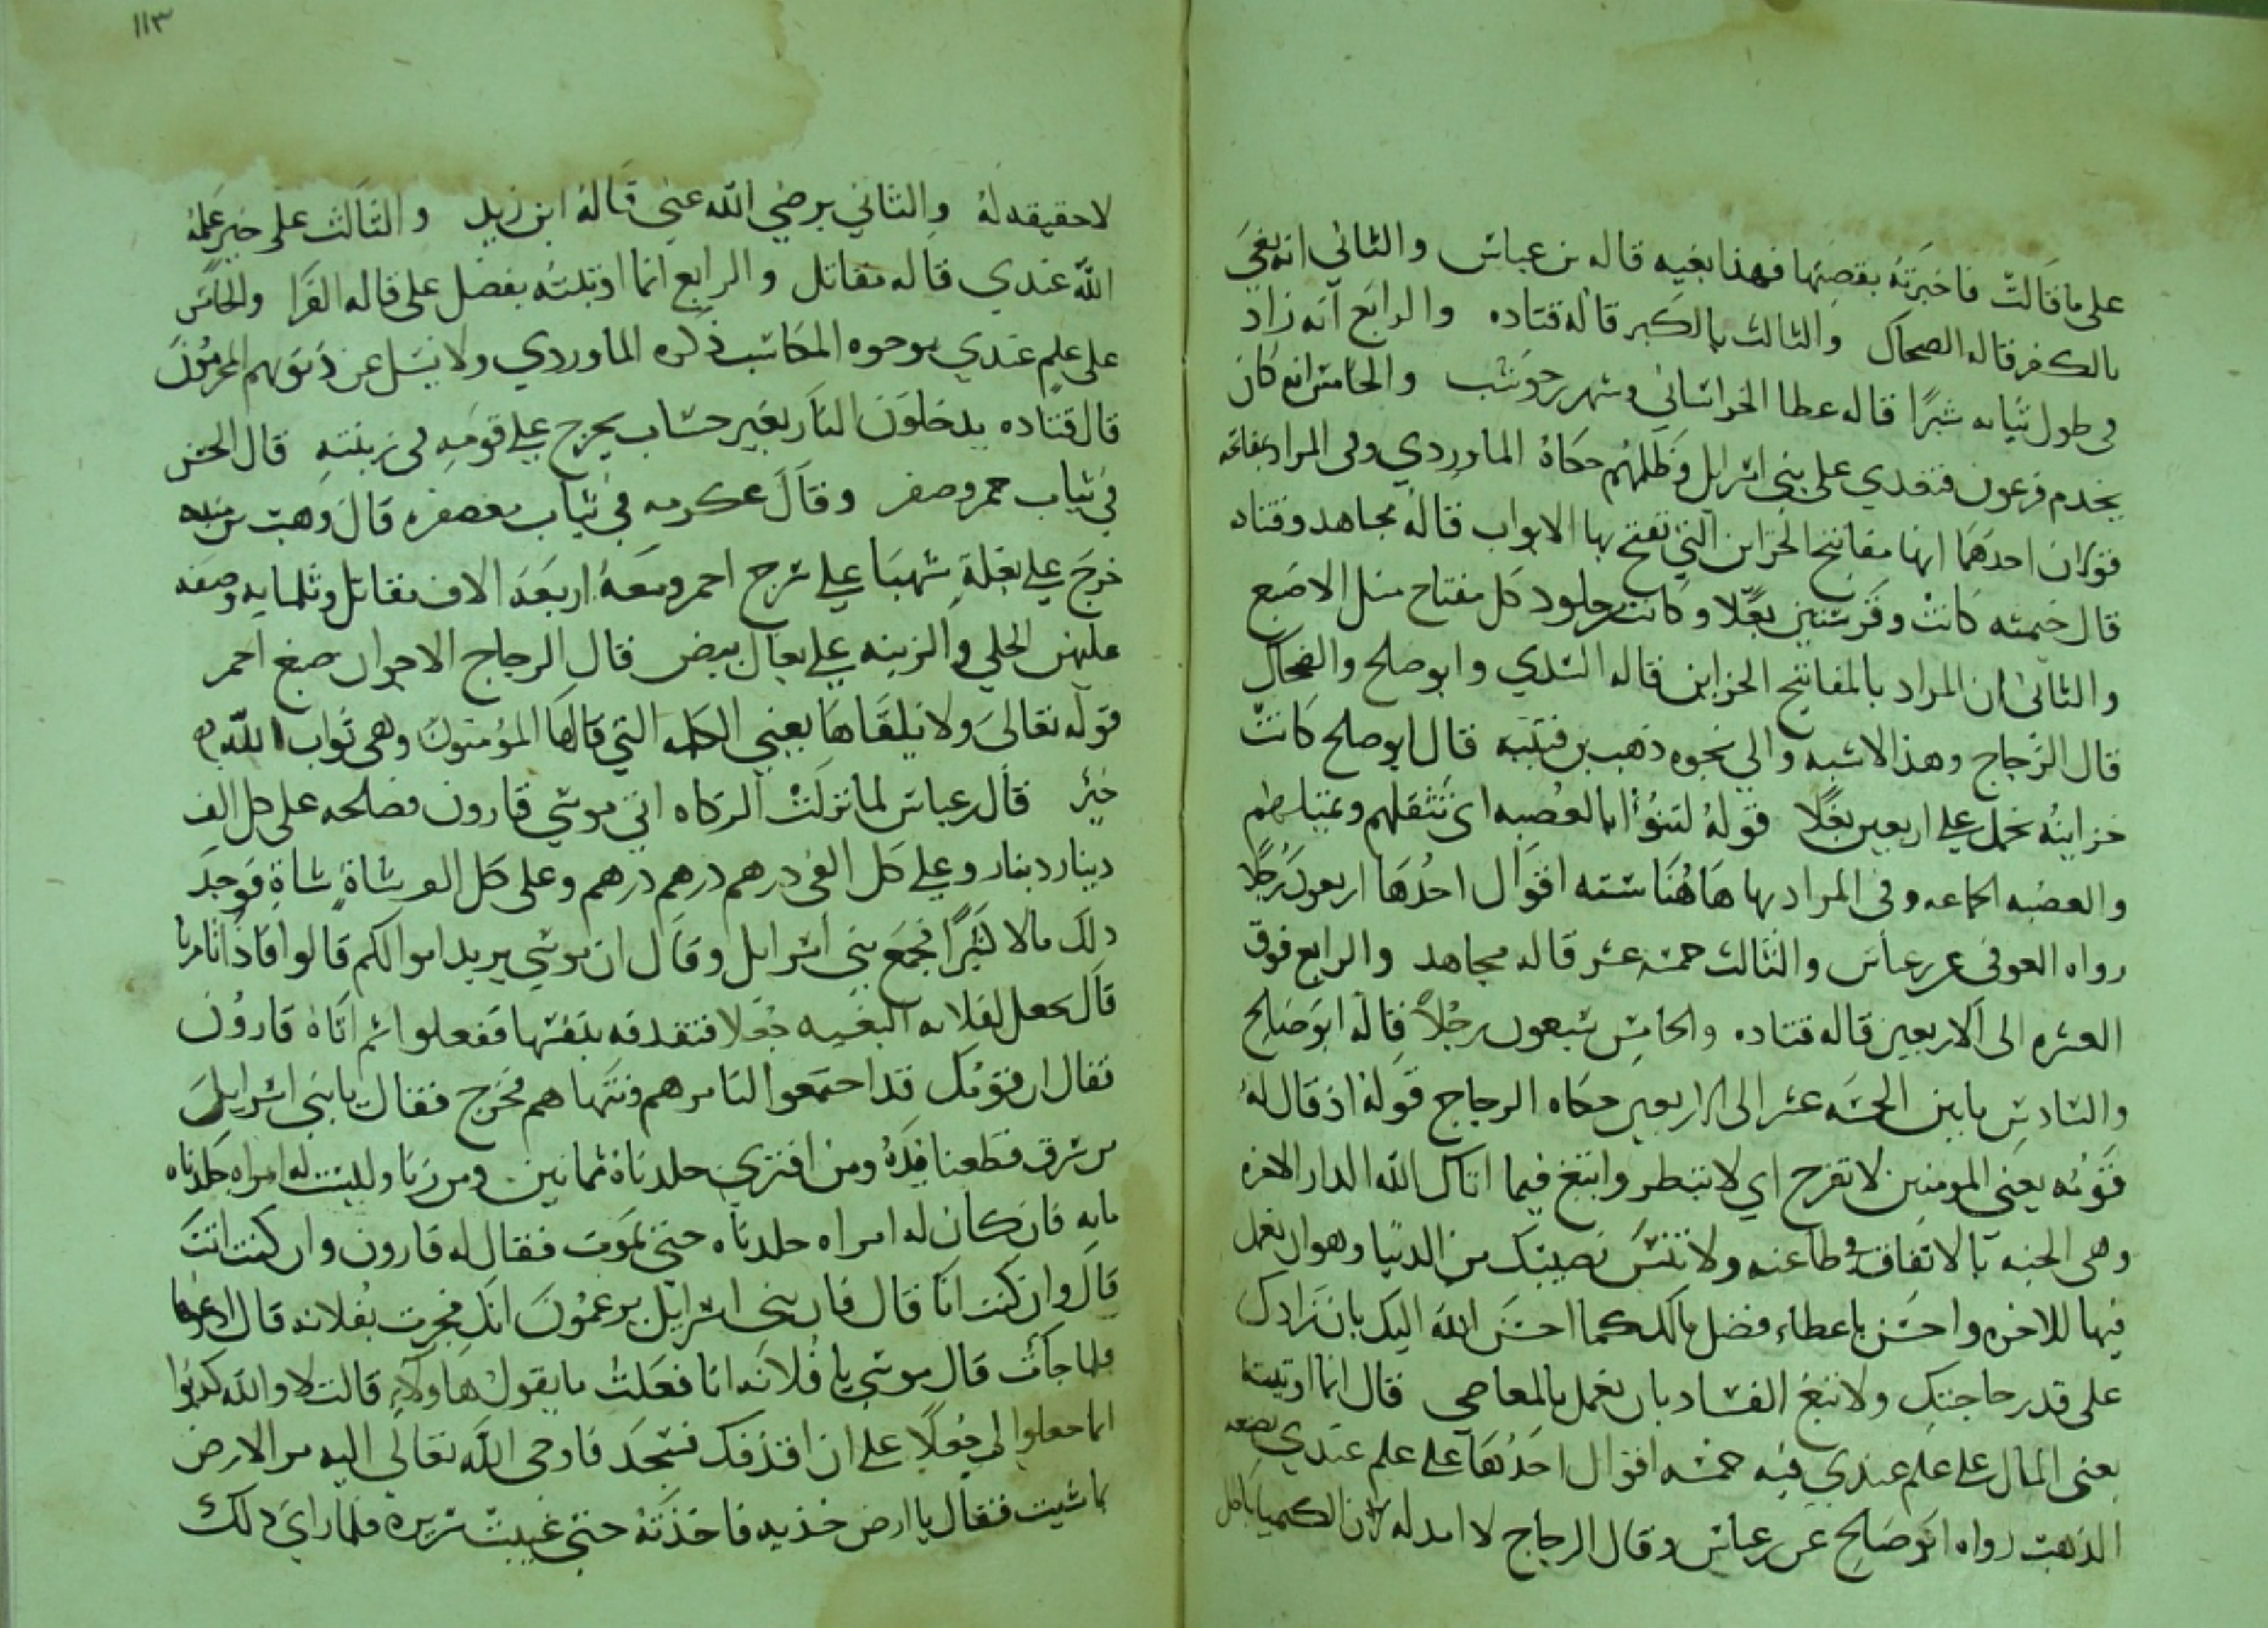 على ما قالت فاخبرته بقصتها فهذا بغيه قاله بن عباس والثاني انه بغي
بالكفر قاله الضحاك والثالث بالكبر قاله قتاده والرابع انه زاد
في طول ثيابه شبرًا قاله عطا الخراساني وشهر حوشب والخامس انه كان
يخدم فرعون فتعدي على بني اسرايل وظلمهم حكاه الماوردي وفى المراد بمفاتحه
قولان احدهما انها مفاتيح الخزاين التي تفتح بها الابواب قاله مجاهد وقتاده
قال خيثمه كانت وقر ستين بغلا وكانت جلود كل مفتاح مثل الاصبع
والثاني ان المراد بالمفاتيح الخزاين قاله السدي وابو صلح والضحاك
قال الزجاج وهذا الاشبه والي نحوه ذهب بن قتيبه قال ابو صلح كانت
خزاينه تحمل علي اربعين بغلًا قوله لتنؤ بالعصبه اى تثقلهم وتميلهم
والعصبه الجماعه وفى المراد بها هاهنا سته اقوال احدها اربعون رجلا
رواه العوفى عن بن عباس والثالث خمسة عشر قاله مجاهد والرابع فوق
العشره الى الاربعين قاله قتاده والخامس سبعون رجلاً قاله ابو صالح
والسادس ما بين الخمسه عشر الى الاربعين حكاه الزجاج قوله اذ قال له
قومه يعني المومنين لا تفرح اي لا تبطر وابتغ فيما اتاك الله الدار الاخره
وهى الجنه بالانفاق في طاعته ولا تنس نصيبك من الدنيا وهو ان تعمل
فيها للاخره واحسن باعطاء فضل مالك كما احسن الله اليك بان زادك
على قدر حاجتك ولا تبغ الفساد بان تعمل بالمعاصي قال انما اوتيته
يعنى المال على علم عندي فيه خمسه اقوال احدها على علم عندي بصنعه
الذهب رواه ابو صالح عن بن عباس وقال الزجاج لا اصل له لان الكيميا باطل
١١٣
لا حقيقه له والثاني برضي الله عني قاله ابن زيد والثالث على خير علمه
الله عندي قاله مقاتل والرابع انما اوتيته بفضل على قاله الفرا والخامس
على علم عندي بوجوه المكاسب ذكره الماوردي ولا يسل عن ذنوبهم المجرمون
قال قتاده يدخلون النار بغير حساب يخرج علي قومه فى زينته قال الحسن
في ثياب حمر وصفر وقال عكرمه في ثياب معصفره قال وهب بن منبه
خرج علي بغلة شهبا علي سرج احمر ومعه اربعه الاف مقاتل وثلمايه وصيفه
عليهن الحلي والزينه علي بغال بيض قال الزجاج الاجوان صبغ احمر
قوله تعالى ولا يلقاها يعني الكلمه التي قالها المؤمنون وهى ثواب الله
خير قال بن عباس لما نزلت الزكاه اتي موسي قارون فصلحه على كل الف
دينار دينار وعلي كل الفى درهم درهم درهم وعلى كل الف شاة شاة فوجد
ذلك مالا كثيرًا فجمع بني اسرايل وقال ان موسي يريد اموالكم قالوا فماذا تامرنا
قال نجعل لفلانه البغيه جعلا فتقذفه بنفسها ففعلوا ثم اتاه قارون
فقال ان قومك قد اجتمعوا لتامرهم وتنهاهم فخرج فقال يا بني اسرايل
من سرق قطعنا يده ومن افترى جلدناه ثمانين ومن زنا وليست له امراه جلدناه
مايه فان كان له امراه جلدناه حتي يموت فقال له قارون وان كنت انت
قال وان كنت انا قال فان بني اسرايل يزعمون انك فجرت بفلانه قال ادعوها
فلما جات قال موسي يا فلانه انا فعلت ما يقول هاولاء قالت لا والله كذبوا
انما جعلوا لي جعلًا علي ان اقذفك فسجد فاوحى الله تعالى اليه مر الارض
بما شيت فقال يا ارض خذيه فاخذته حتي غيبت سريره فلما راي ذلك